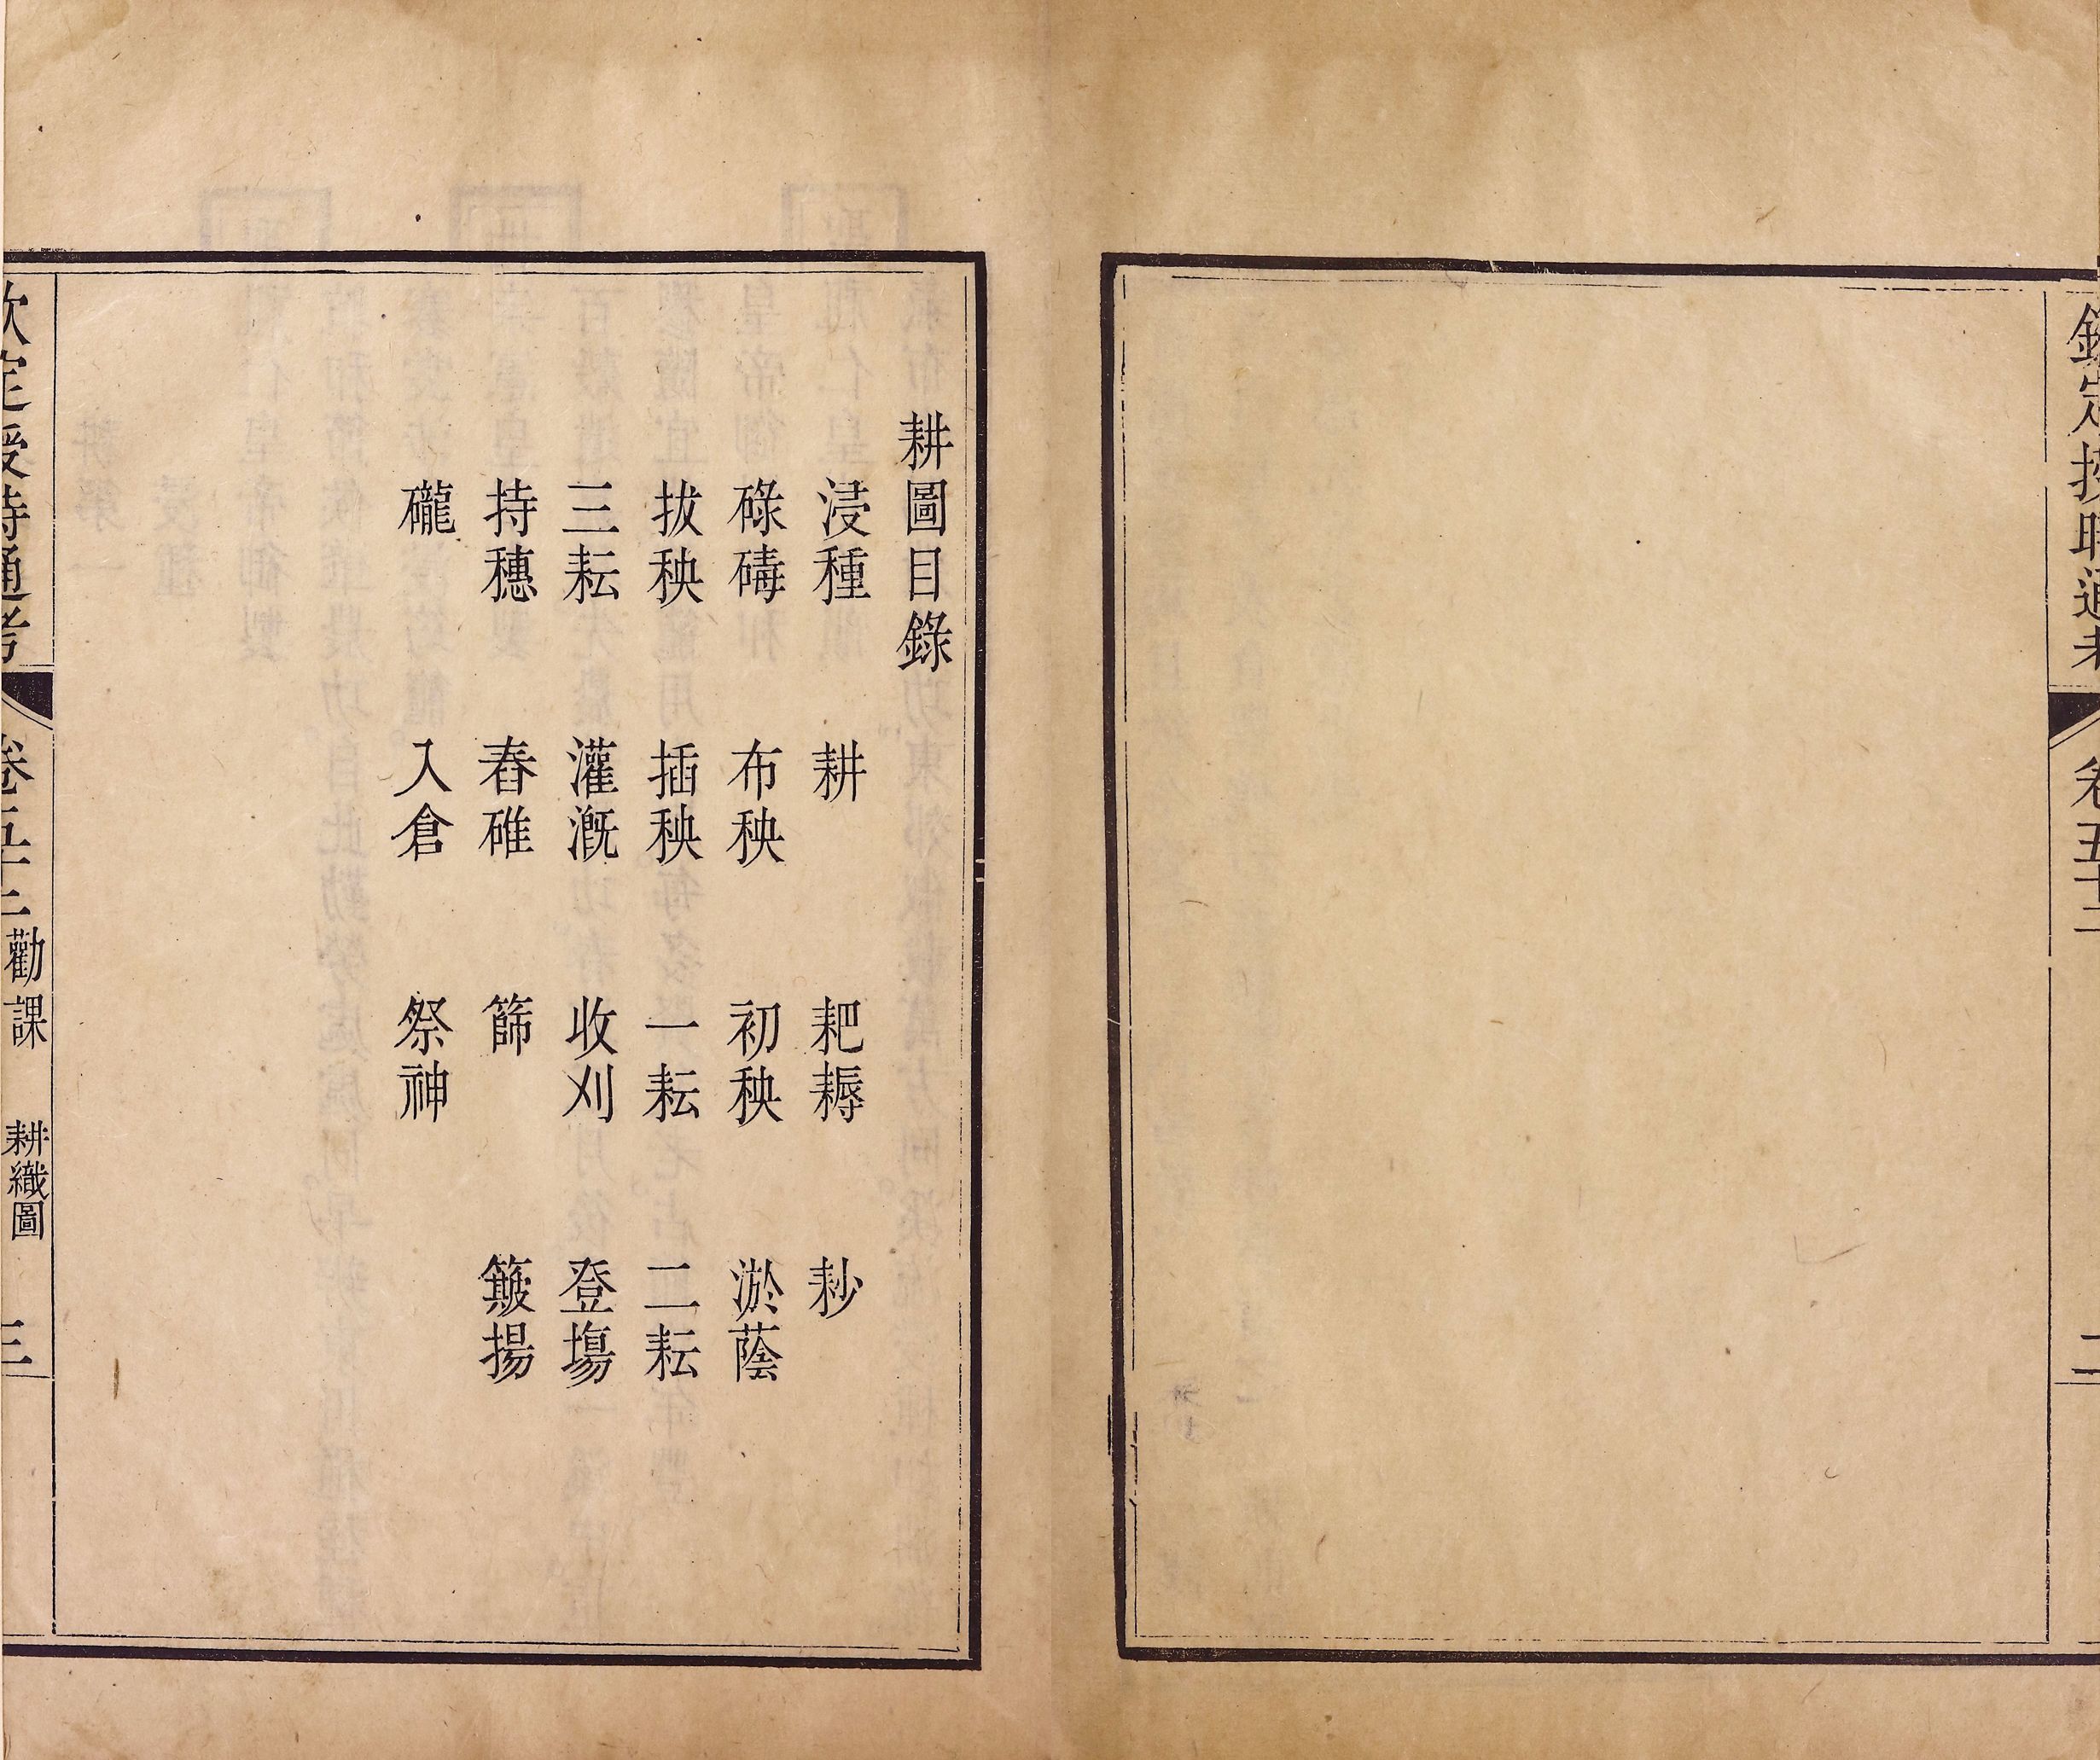 欽定授時通考 卷五十二 二
耕圖目錄
浸種 耕 耙耨 耖
碌碡 布秧 初秧 淤蔭
拔秧 插秧 一耘 二耘
三耘 灌漑 收刈 登塲
持穗 舂碓 篩 簸揚
礲 入倉 祭神
欽定授時通考 卷五十二 勸課 耕織圖 三